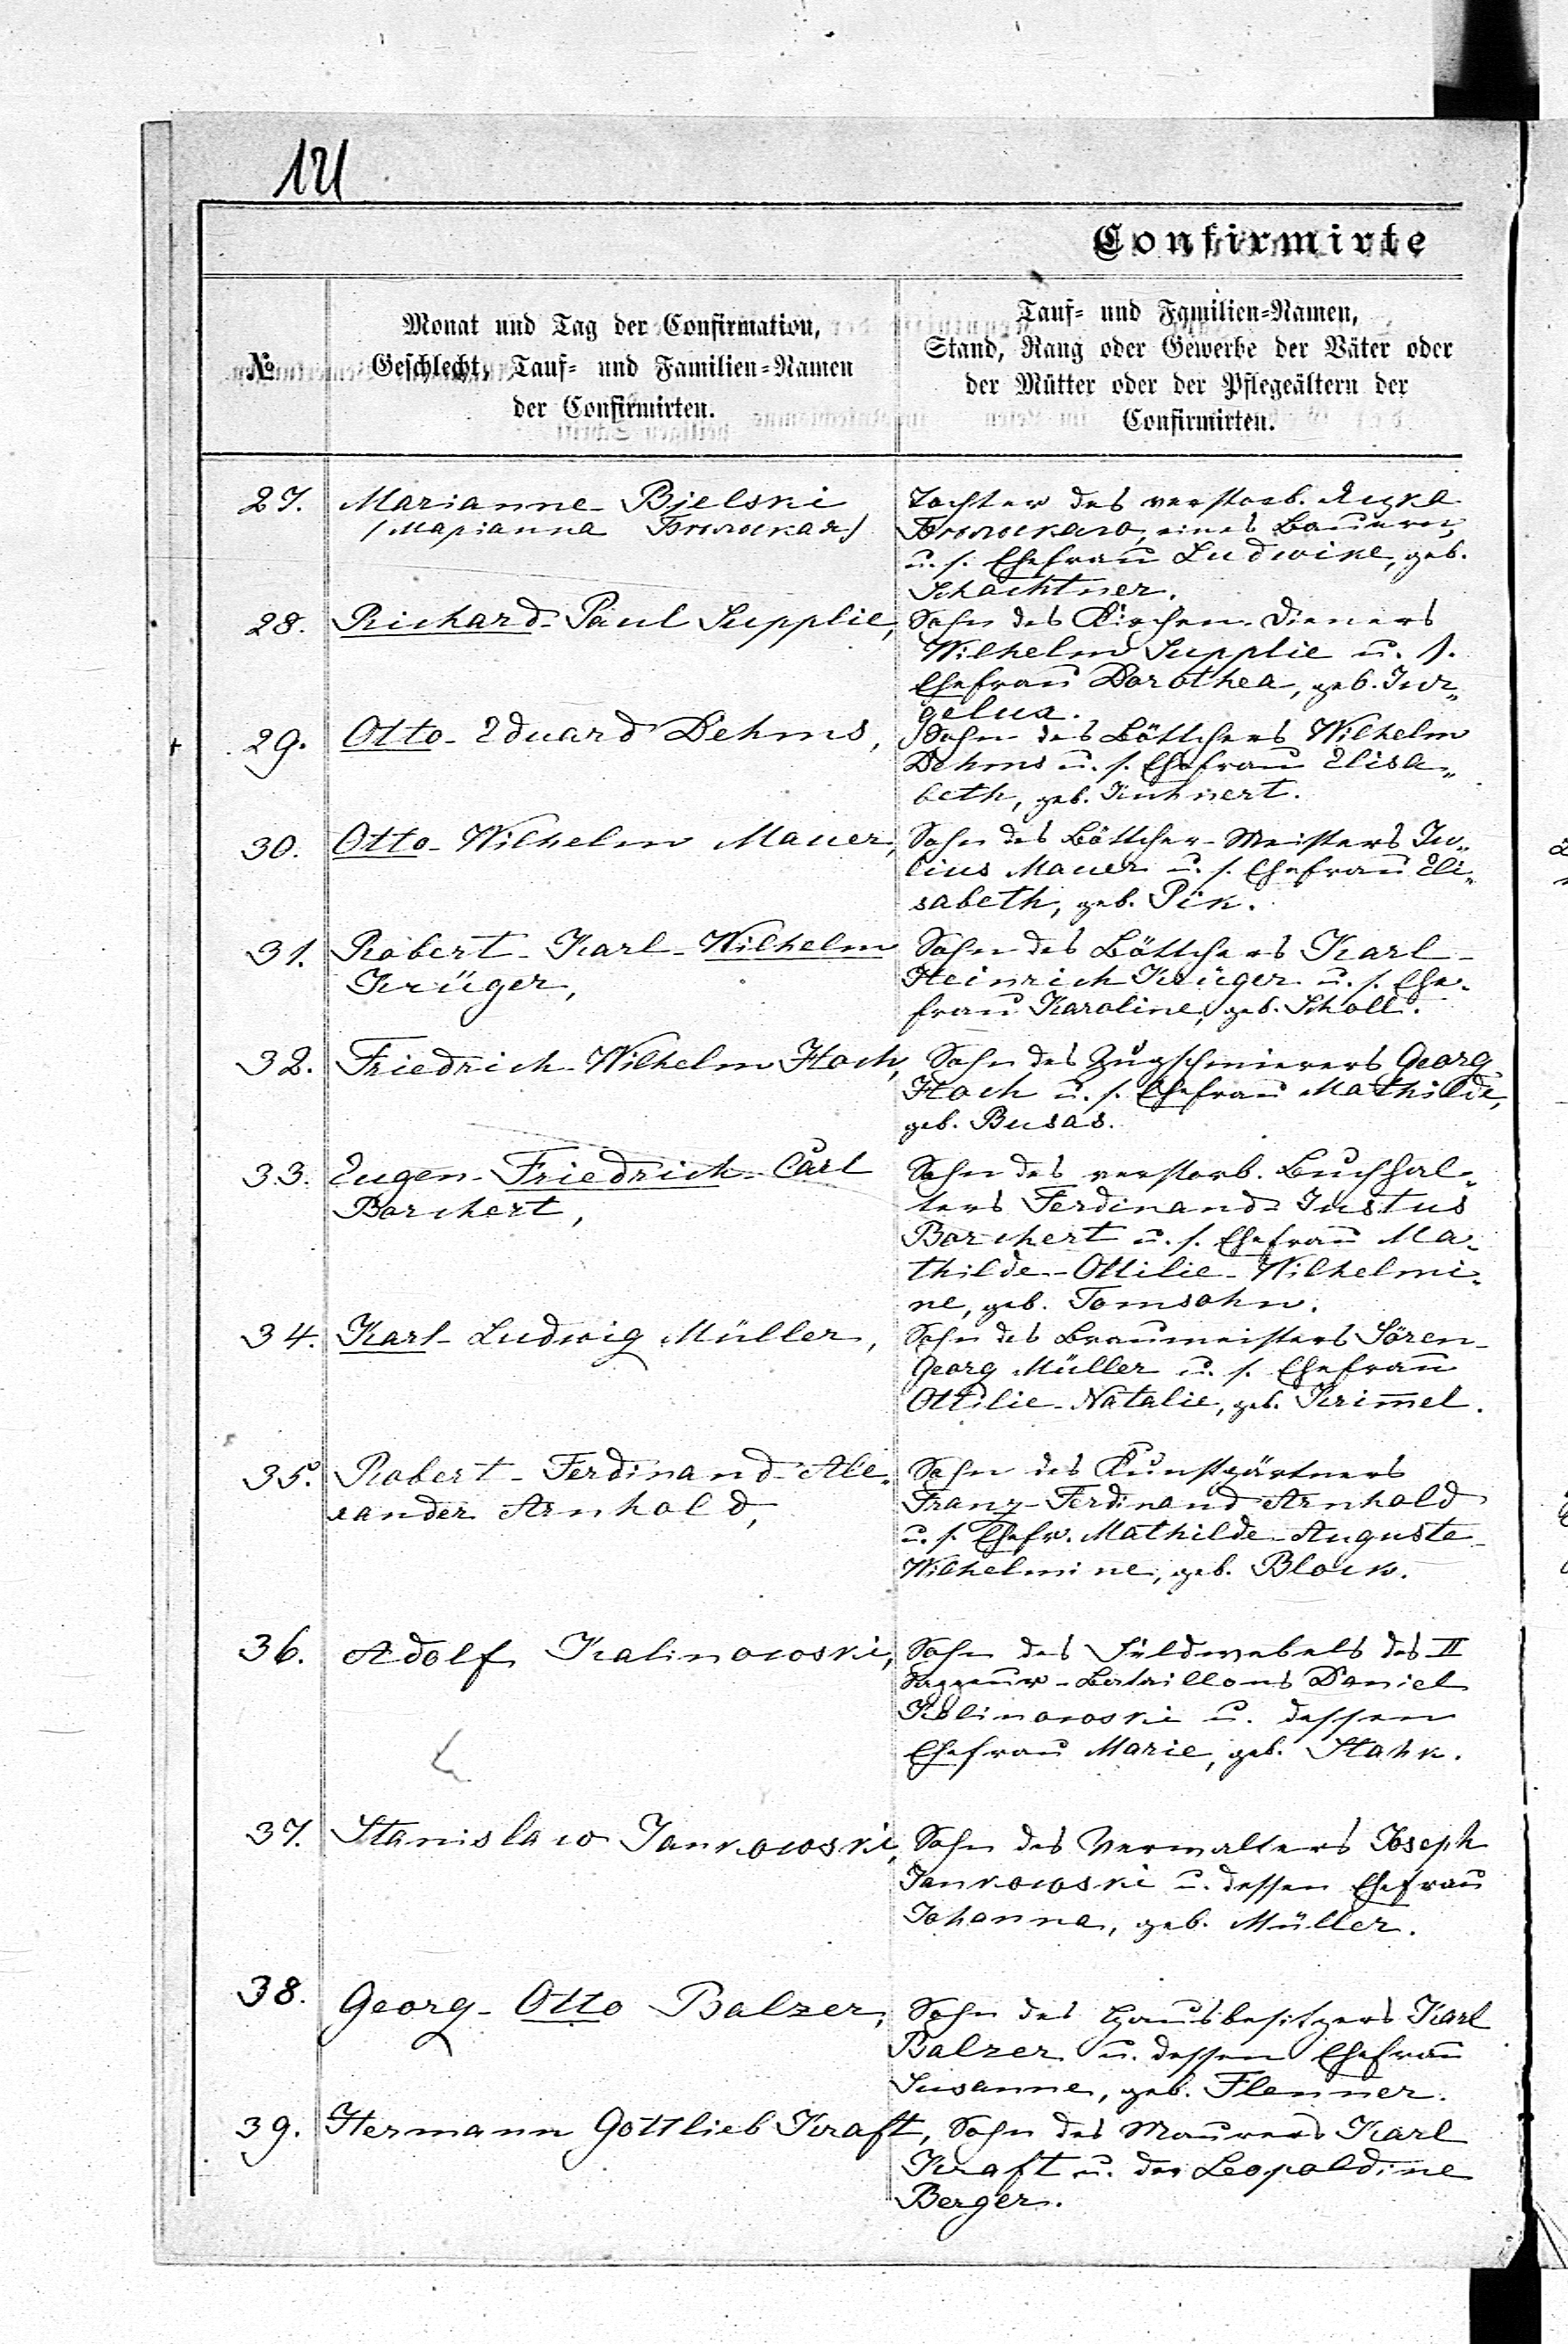 121
Confirmirte
№
Monat und Tag der Confirmation,
Geschlecht, Tauf- und Familien-Namen
der Confirmirten.
Tauf- und Familien-Namen,
Stand, Rang oder Gewerbe der Väter oder
der Mütter oder der Pflegeältern der
Confirmirten.
27. Marianne Bjelski
(Маріанна
Tochter des verstorb.
eines Bauern,
u. s. Ehefrau Ludwike, geb.
Schachtner.
28. Richard-Paul Supplie,
Sohn des Kirchen-Dieners
Wilhelm Supplie u. s.
Ehefrau Dorothea, geb. Jur„
29. Otto-Eduard Dehms,
Sohn des Böttchers Wilhelm
Dehms u. s. Ehefrau Elisa„
beth, geb. Kuhnert.
30. Otto-Wilhelm Mauer,
Sohn des Böttcher-Meisters Ju„
lius Mauer u. s. Ehefrau Eli„
sabeth, geb. Pik.
31. Robert-Karl-Wilhelm
Krüger,
Sohn des Böttchers Karl-
Heinrich Krüger u. s. Ehe-
frau Karoline, geb. Scholl.
32. Friedrich-Wilhelm Hoch,
Sohn des Zugschmierers Georg
Hoch u. s. Ehefrau Mathilde,
geb. Busas.
33. Eugen-Friedrich-Carl
Borchert,
Sohn des verstorb. Buchhal-
ters Ferdinand-Justus
Borchert u. s. Ehefrau Ma-
thilde-Ottilie-Wilhelmi-
ne, geb. Tomsohn.
34. Karl-Ludwig Müller,
Sohn des Braumeisters Sören-
Georg Müller u. s. Ehefrau
Ottilie-Natalie, geb. Krim̅el.
35. Robert-Ferdinand-Ale-
xander Arnhold,
Sohn des Kunstgärtners
Franz-Ferdinand Arnhold
u. s. Ehefr. Mathilde-Auguste-
Wilhelmine, geb. Block.
36. Adolf Kalinowski,
Sohn des Feldwebels des II
Sappeur-Bataillons Daniel
Kalinowski u. dessen
Ehefrau Marie, geb. Stahk.
37. Stanislaw Jankowski,
Sohn des Verwalters Joseph
Jankowski u. dessen Ehefrau
Johanna, geb. Müller.
38. Georg-Otto Balzer,
Sohn des Hausbesitzers Karl
Balzer u. dessen Ehefrau
Susanne, geb. Flenner.
39. Hermann Gottlieb Kraft,
Sohn des Maurers Karl
Kraft u. der Leopoldine
Berger.